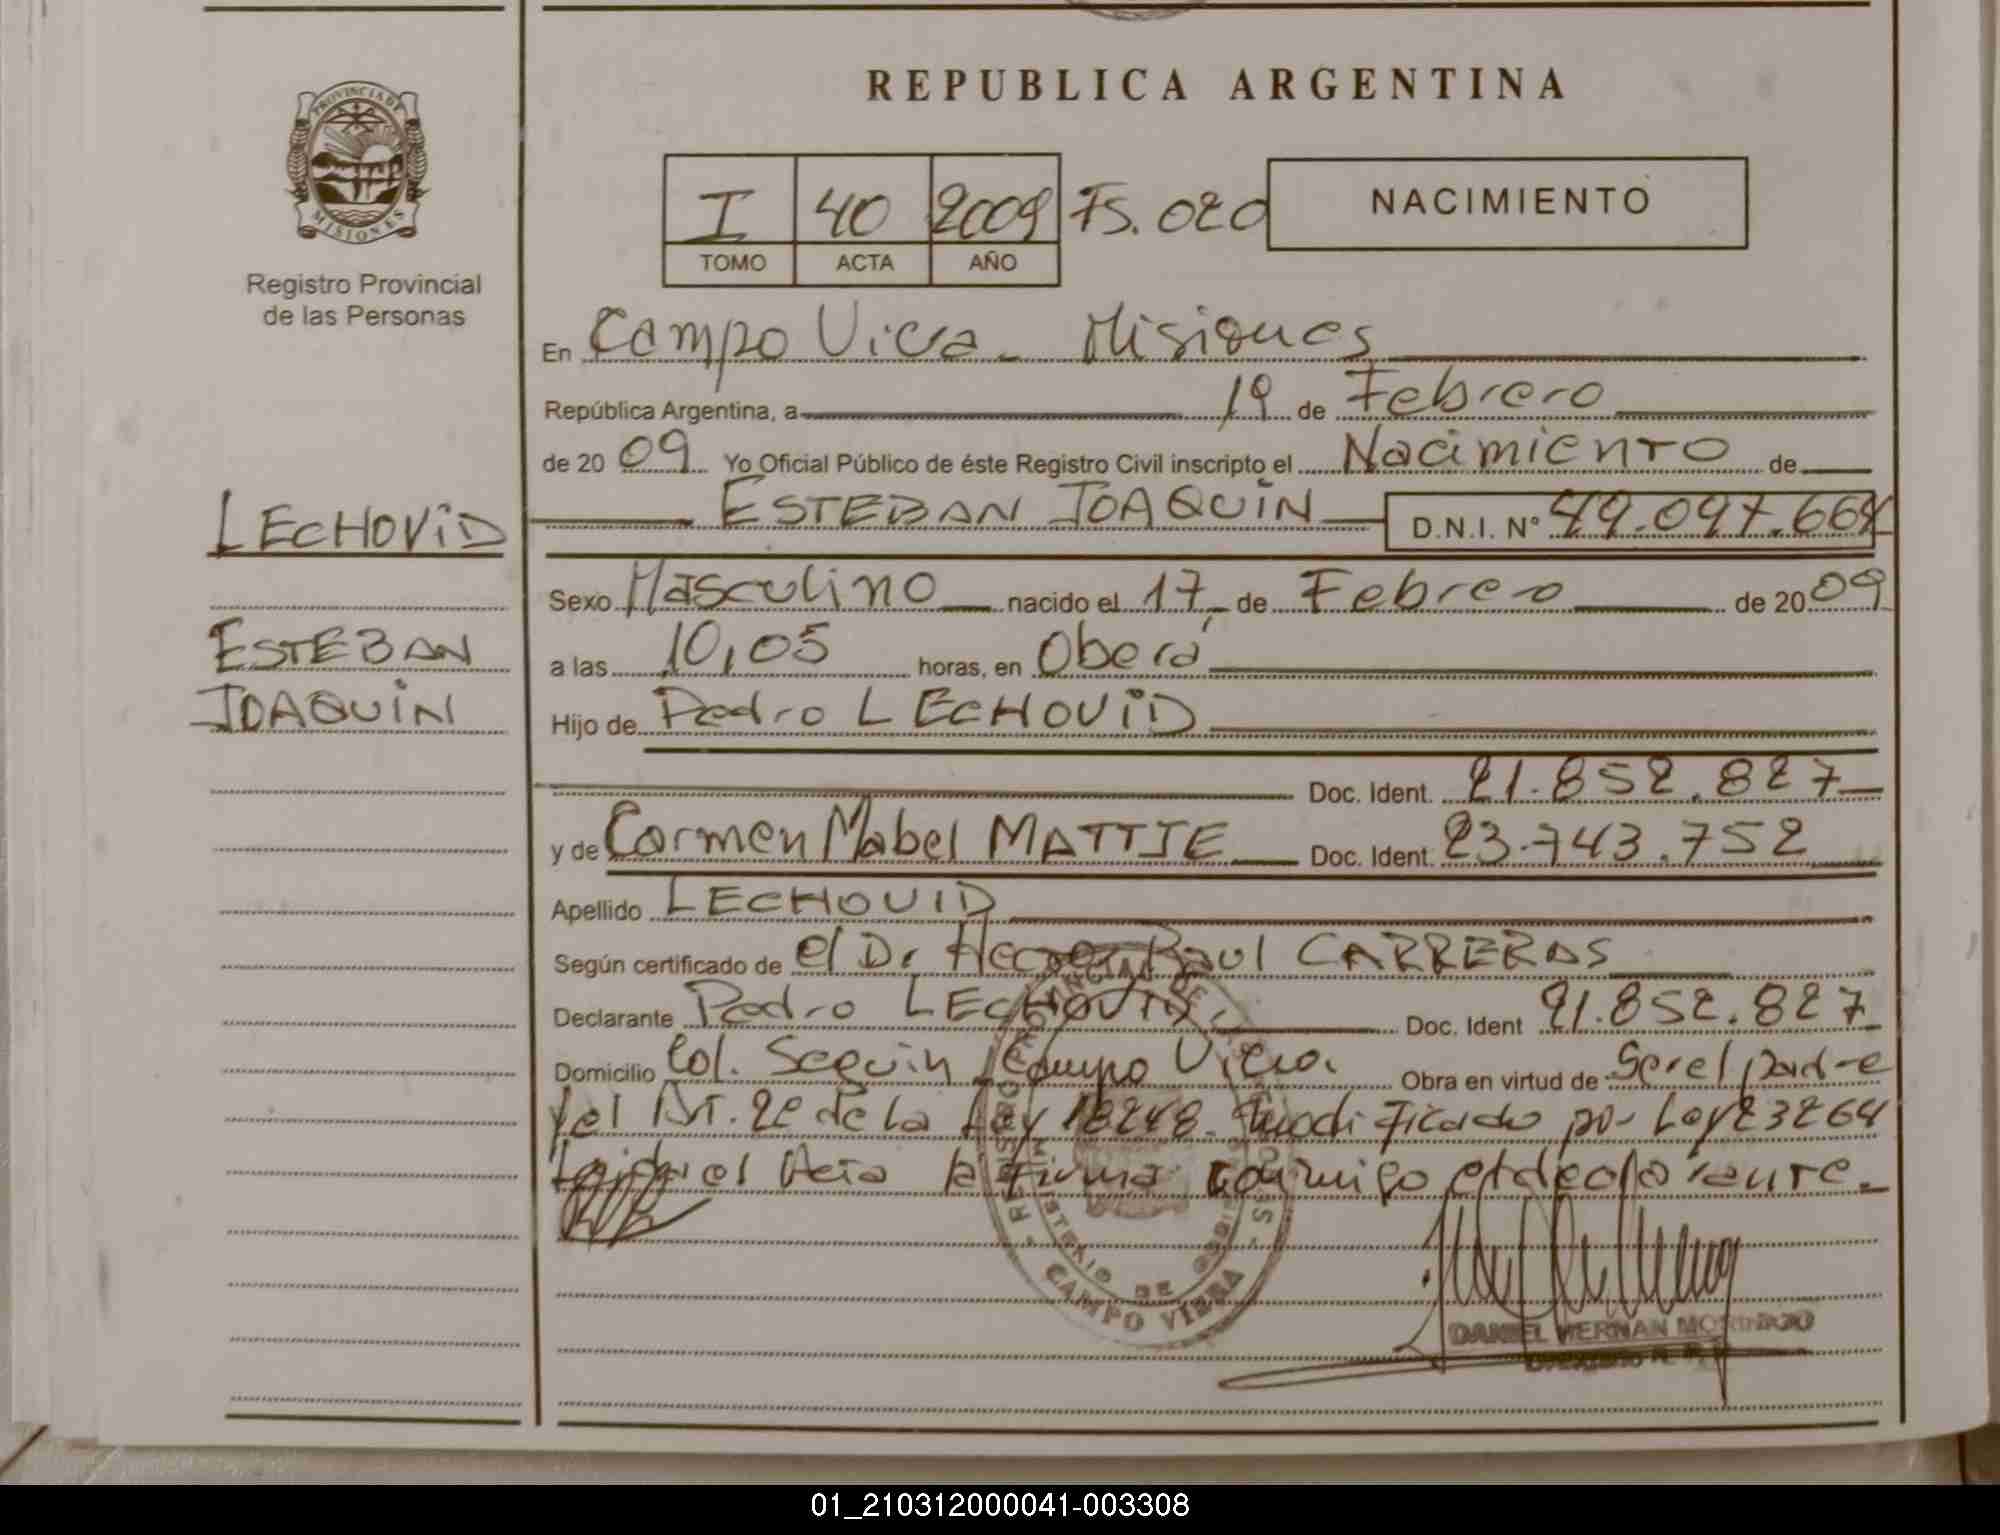 REPUBLICA ARGENTINA
PROVINCIA DE
MISIONES
Registro Provincial
de las Personas
I 40 2009 Fs. 020
TOMO ACTA AÑO
NACIMIENTO
En Campo Viera - Misiones
República Argentina, a 19 de Febrero
de 20 09 Yo Oficial Público de éste Registro Civil inscripto el Nacimiento de
LECHOViD
ESTEBAN JOAQUíN D.N.I. Nº 49.047.664
Sexo Masculino nacido el 17 de Febrero de 20 09
ESTEBAN
JOAQUíN
a las 10,05 horas, en Oberá
Hijo de Pedro LECHOViD
Doc. Ident. 21.852.827
y de Carmen Mabel MATTJE Doc. Ident. 23.743.752
Apellido LECHOVID
Según certificado de el Dr Raul CARRERAS
Declarante Pedro LECHOVID. Doc. Ident 21.852.827
Domicilio Col. Seguin Campo Viera. Obra en virtud de Ser el padre
y el Art. 2º de la Ley 18248. Modificado por Ley 23264
Leida el Acta la firma conmigo el declarante.
CAMPO VIERA
DANIEL HERNAN
01_210312000041-003308